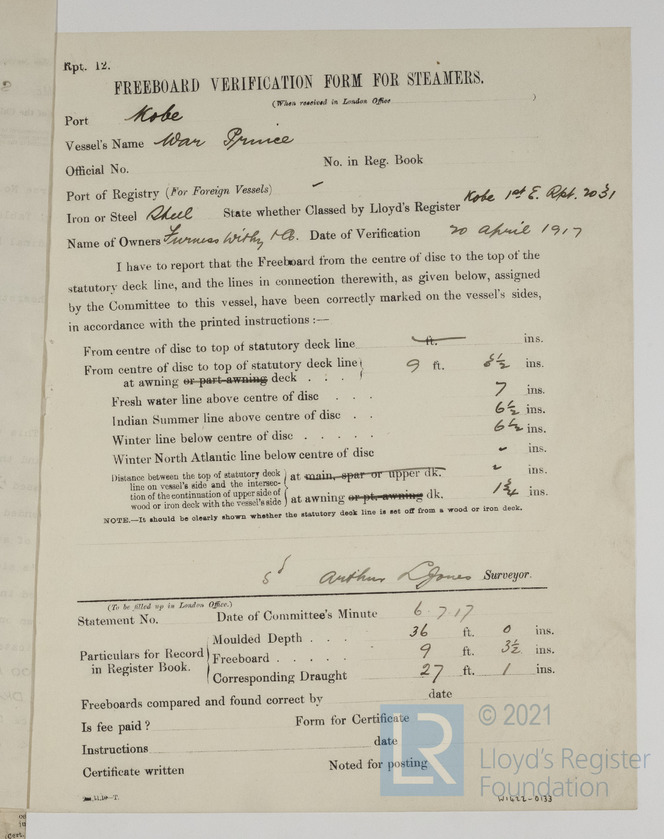 Rpt. 12.
FREEBOARD VERIFICATION FORM FOR STEAMERS.
(When received in London Office )
Port Kobe
Vessel's Name War Prince
Official No. No. in Reg. Book
Port of Registry (For Foreign Vessels) -
Iron or Steel Steel State whether Classed by Lloyd's Register Kobe 1st E. Rpt. 2031
Name of Owners Furness Withy & Co. Date of Verification 20 April 1917
I have to report that the Freeboard from the centre of disc to the top of the
statutory deck line, and the lines in connection therewith, as given below, assigned
by the Committee to this vessel, have been correctly marked on the vessel's sides,
in accordance with the printed instructions :—
From centre of disc to top of statutory deck line ft. ins.
From centre of disc to top of statutory deck line
at awning or part-awning deck . . . 9 ft. ½ ins.
Fresh water line above centre of disc . . . 7 ins.
Indian Summer line above centre of disc . . 6½ ins.
Winter line below centre of disc . . . . . 6½ ins.
Winter North Atlantic line below centre of disc - ins.
Distance between the top of statutory deck
line on vessel's side and the intersec-
tion of the continuation of upper side of
wood or iron deck with the vessel's side
at main, spar or upper dk. - ins.
at awning or pt. awning dk. 1¾ ins.
NOTE.—It should be clearly shown whether the statutory deck line is set off from a wood or iron deck.
sd Arthur L Jones Surveyor.
(To be filled up in London Office.)
Statement No. Date of Committee's Minute 6.7.17
Particulars for Record
in Register Book.
Moulded Depth . . . 36 ft. 0 ins.
Freeboard . . . . . 9 ft. 3½ ins.
Corresponding Draught 27 ft. 1 ins.
Freeboards compared and found correct by date
Is fee paid? Form for Certificate
Instructions date
Certificate written Noted for posting
LR
© 2021
Lloyd's Register
Foundation
W1622-0133